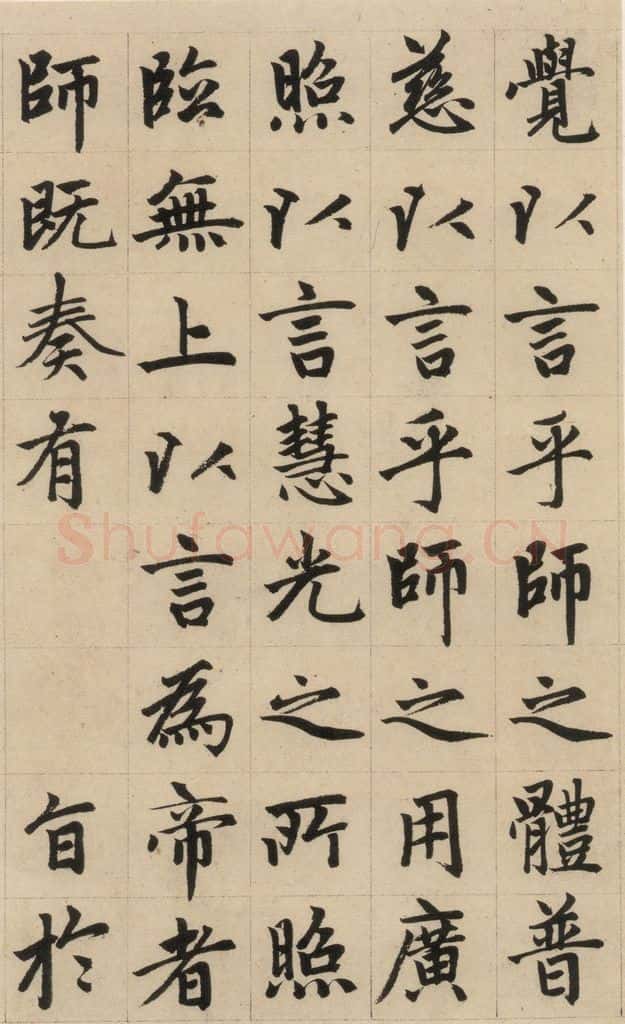 覺以言乎師之體普
慈以言乎師之用廣
照以言慧光之所照
臨無上以言為帝者
師既奏有旨於
Shufawang.CN